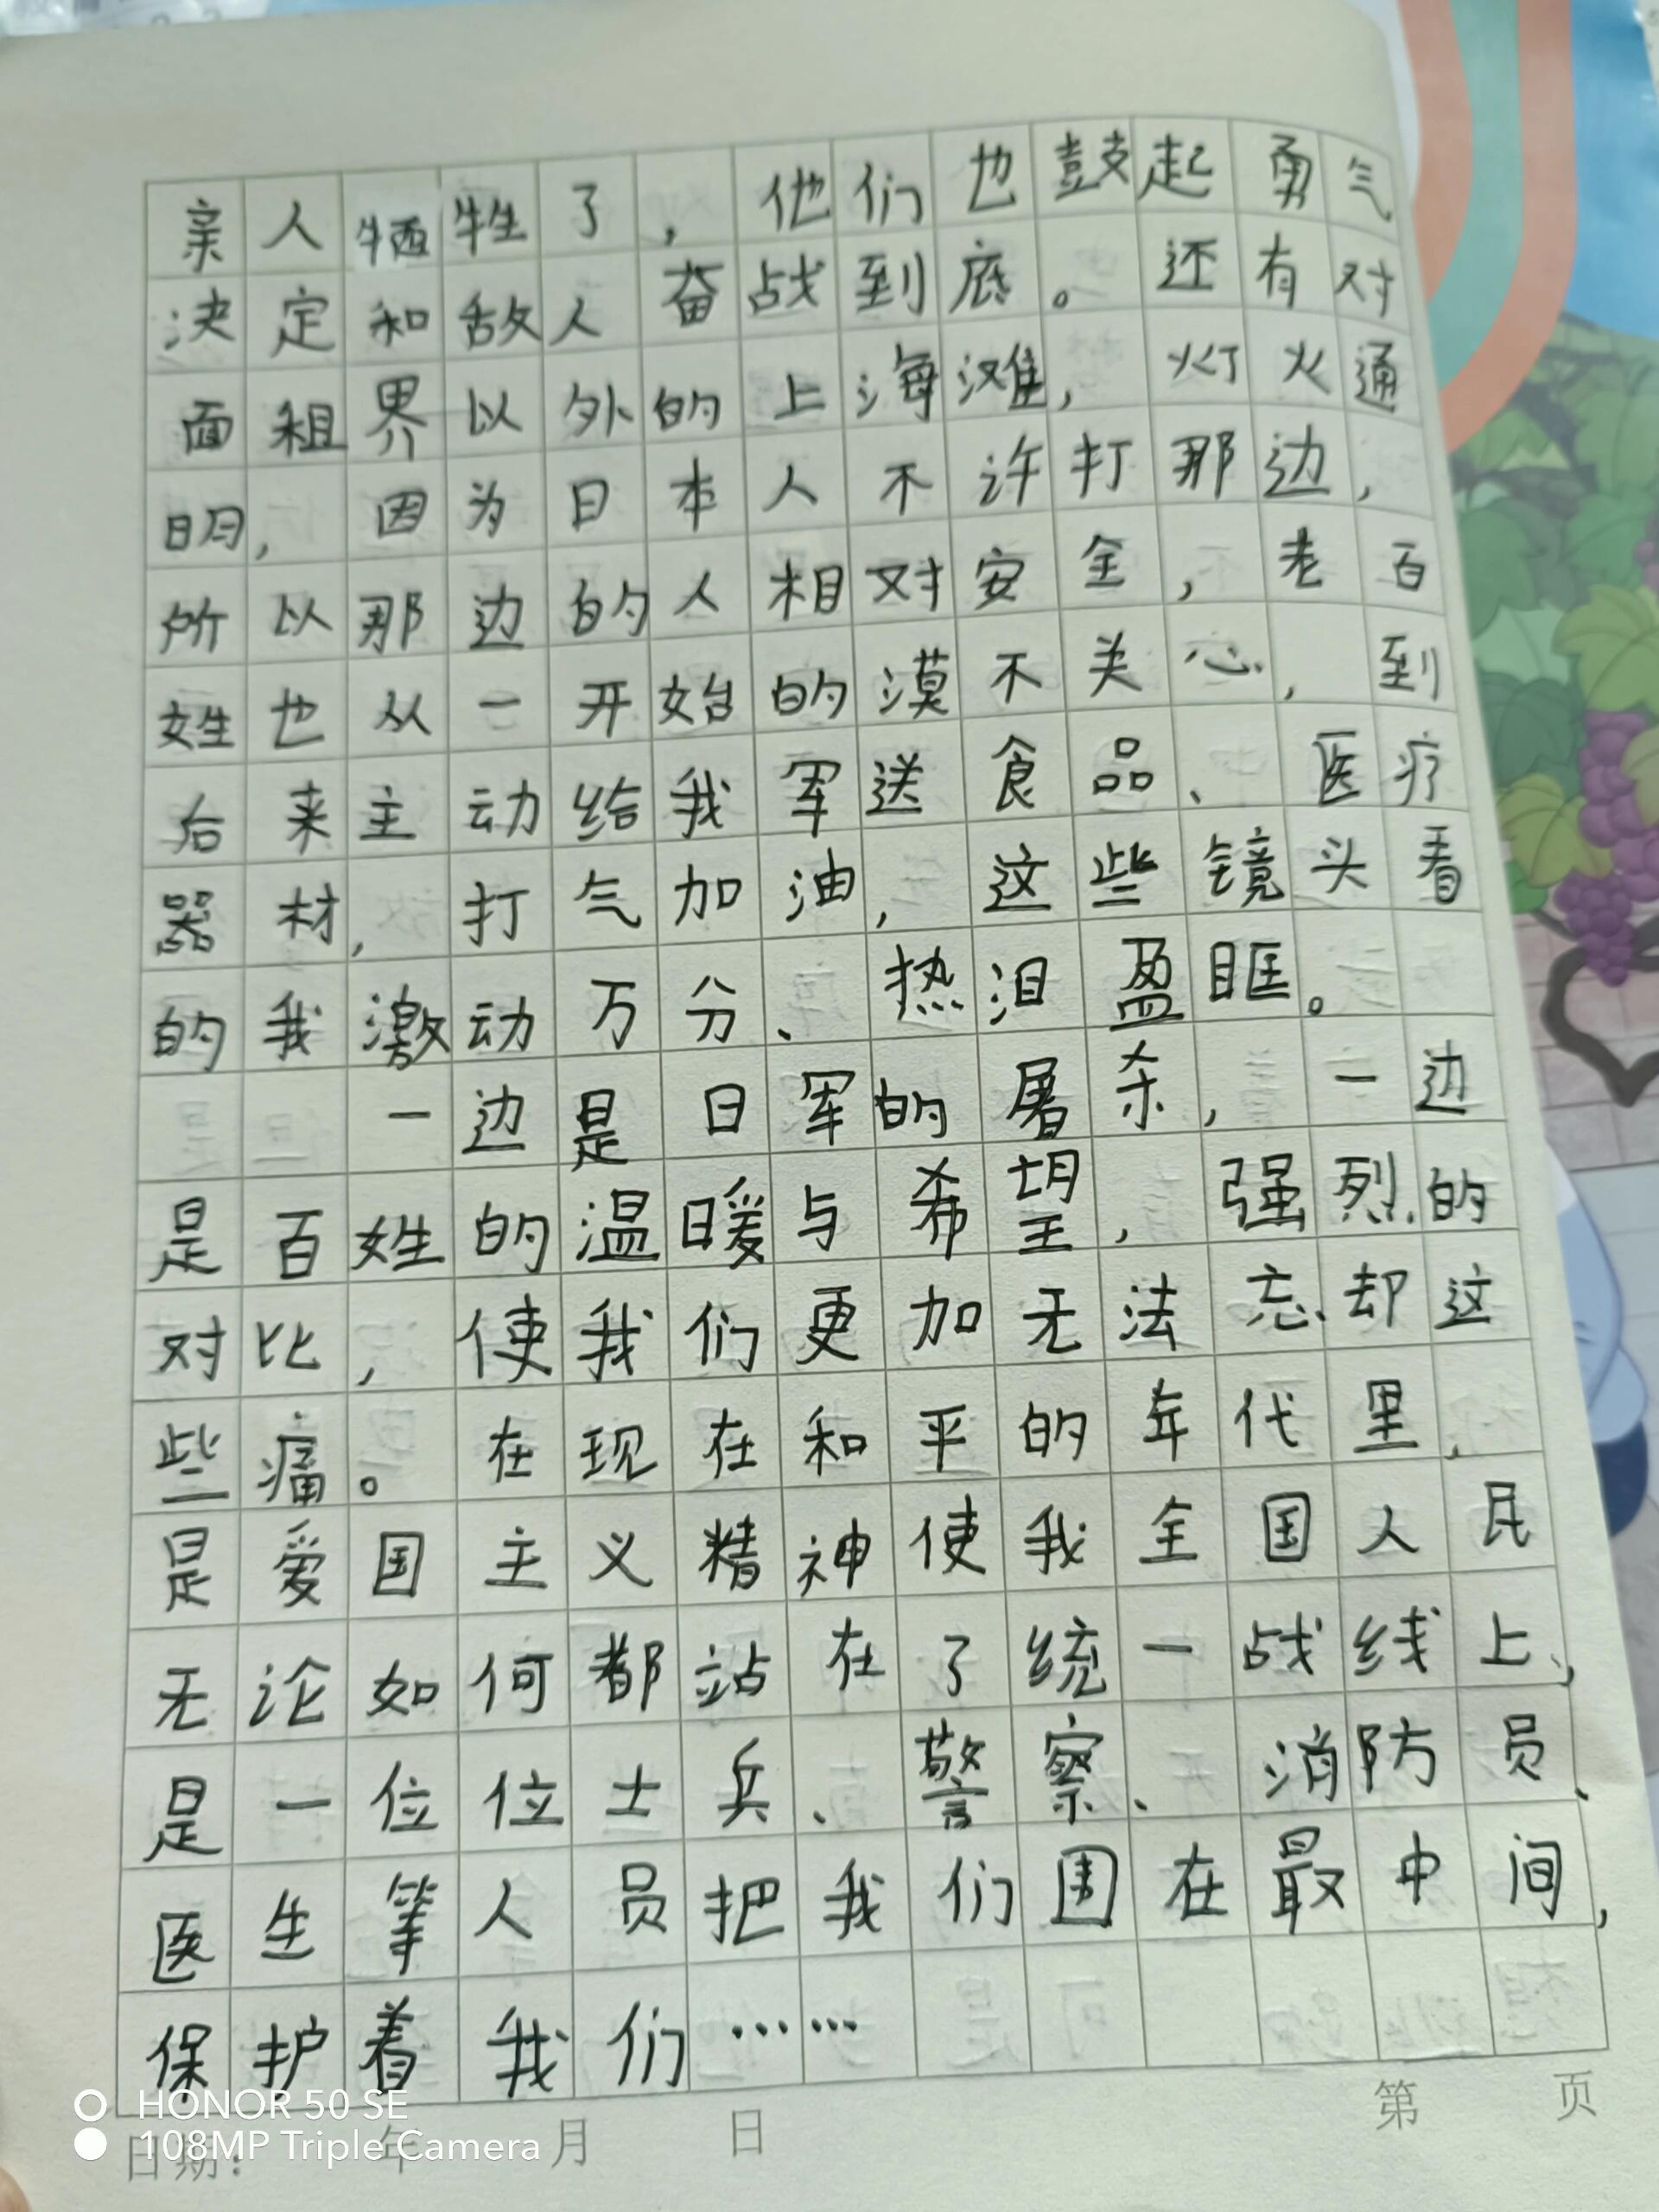 亲人牺牲了，他们也鼓起勇气
决定和敌人奋战到底。还有对
面租界以外的上海滩，灯火通
明，因为日本人不许打那边，
所以那边的人相对安全，老百
姓也从一开始的漠不关心，到
后来主动给我军送食品、医疗
器材，打气加油，这些镜头看
的我激动万分、热泪盈眶。
一边是日军的屠杀，一边
是百姓的温暖与希望，强烈的
对比，使我们更加无法忘却这
些痛。在现在和平的年代里，
是爱国主义精神使我全国人民
无论如何都站在了统一战线上，
是一位位士兵、警察、消防员、
医生等人员把我们围在最中间，
保护着我们……
第 页
日期： 年 月 日
HONOR 50 SE
108MP Triple Camera